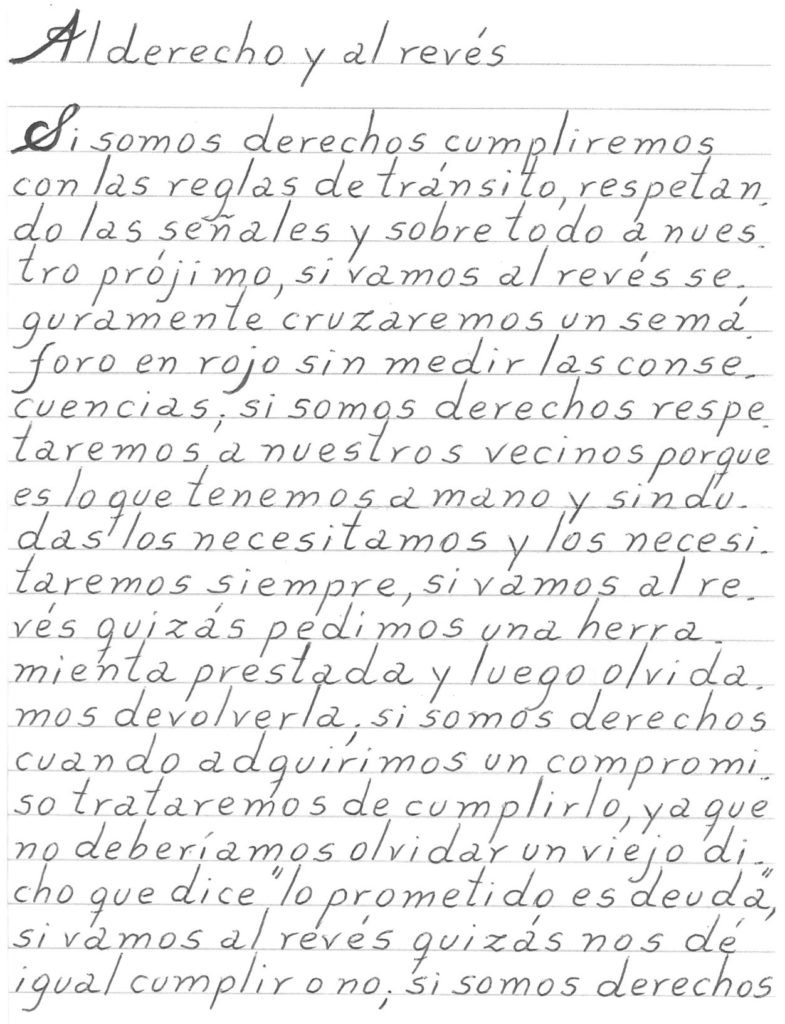 Al derecho y al revés
Si somos derechos cumpliremos
con las reglas de tránsito, respetan_
do las señales y sobre todo a nues_
tro prójimo, si vamos al revés se_
guramente cruzaremos un semá_
foro en rojo sin medir las conse_
cuencias; si somos derechos respe_
taremos a nuestros vecinos porque
es lo que tenemos a mano y sin du_
das los necesitamos y los necesi_
taremos siempre, si vamos al re_
vés quizás pedimos una herra_
mienta prestada y luego olvida_
mos devolverla; si somos derechos
cuando adquirimos un compromi_
so trataremos de cumplirlo, ya que
no deberíamos olvidar un viejo di_
cho que dice "lo prometido es deuda",
si vamos al revés quizás nos dé
igual cumplir o no; si somos derechos